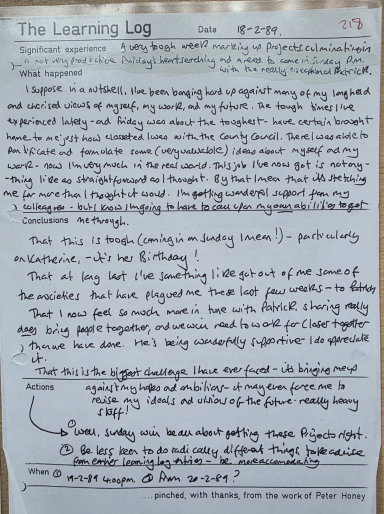 The Learning Log Date 18-2-89. 218
Significant experience A very tough week marking up projects culminating in
a not very productive Friday's heartsearching and a need to come in Sunday P.M.
What happened with the really exceptional Patrick.
I suppose in a nutshell, I've been banging hard up against many of my long held
and cherised views of myself, my work, and my future. The tough times I've
experienced lately - and Friday was about the toughest - have certain brought
home to me just how closeted I was with the County Council. There I was able to
pontificate and formulate some (very valuable) ideas about myself and my
work - now I'm very much in the real world. This job I've now got is not any-
-thing like as straightforward as I thought. By that I mean that it's stretching
me far more than I thought it would. I'm getting wonderful support from my
colleagues - but I know I'm going to have to call upon my own abilities to get
Conclusions me through.
That this is tough (coming in on Sunday I mean!) - particularly
on Katherine, - it's her Birthday!
That at long last I've something like got out of me some of
the anxieties that have plagued me these last few weeks - to Patrick
That I now feel so much more in tune with Patrick, sharing really
does bring people together, and we will need to work far closer together
than we have done. He's being wonderfully supportive - I do appreciate
it.
That this is the biggest challenge I have ever faced - its bringing me up
Actions against my hopes and ambitions - it may even force me to
revise my ideals and visions of the future - really heavy
stuff!
① Well, Sunday will be all about getting these Projects right.
② Be less keen to do radically, different things, take advise
from earlier learning log entries - be more accomodating
When ① 19-2-89 4:00pm. ② From 20-2-89?
....pinched, with thanks, from the work of Peter Honey